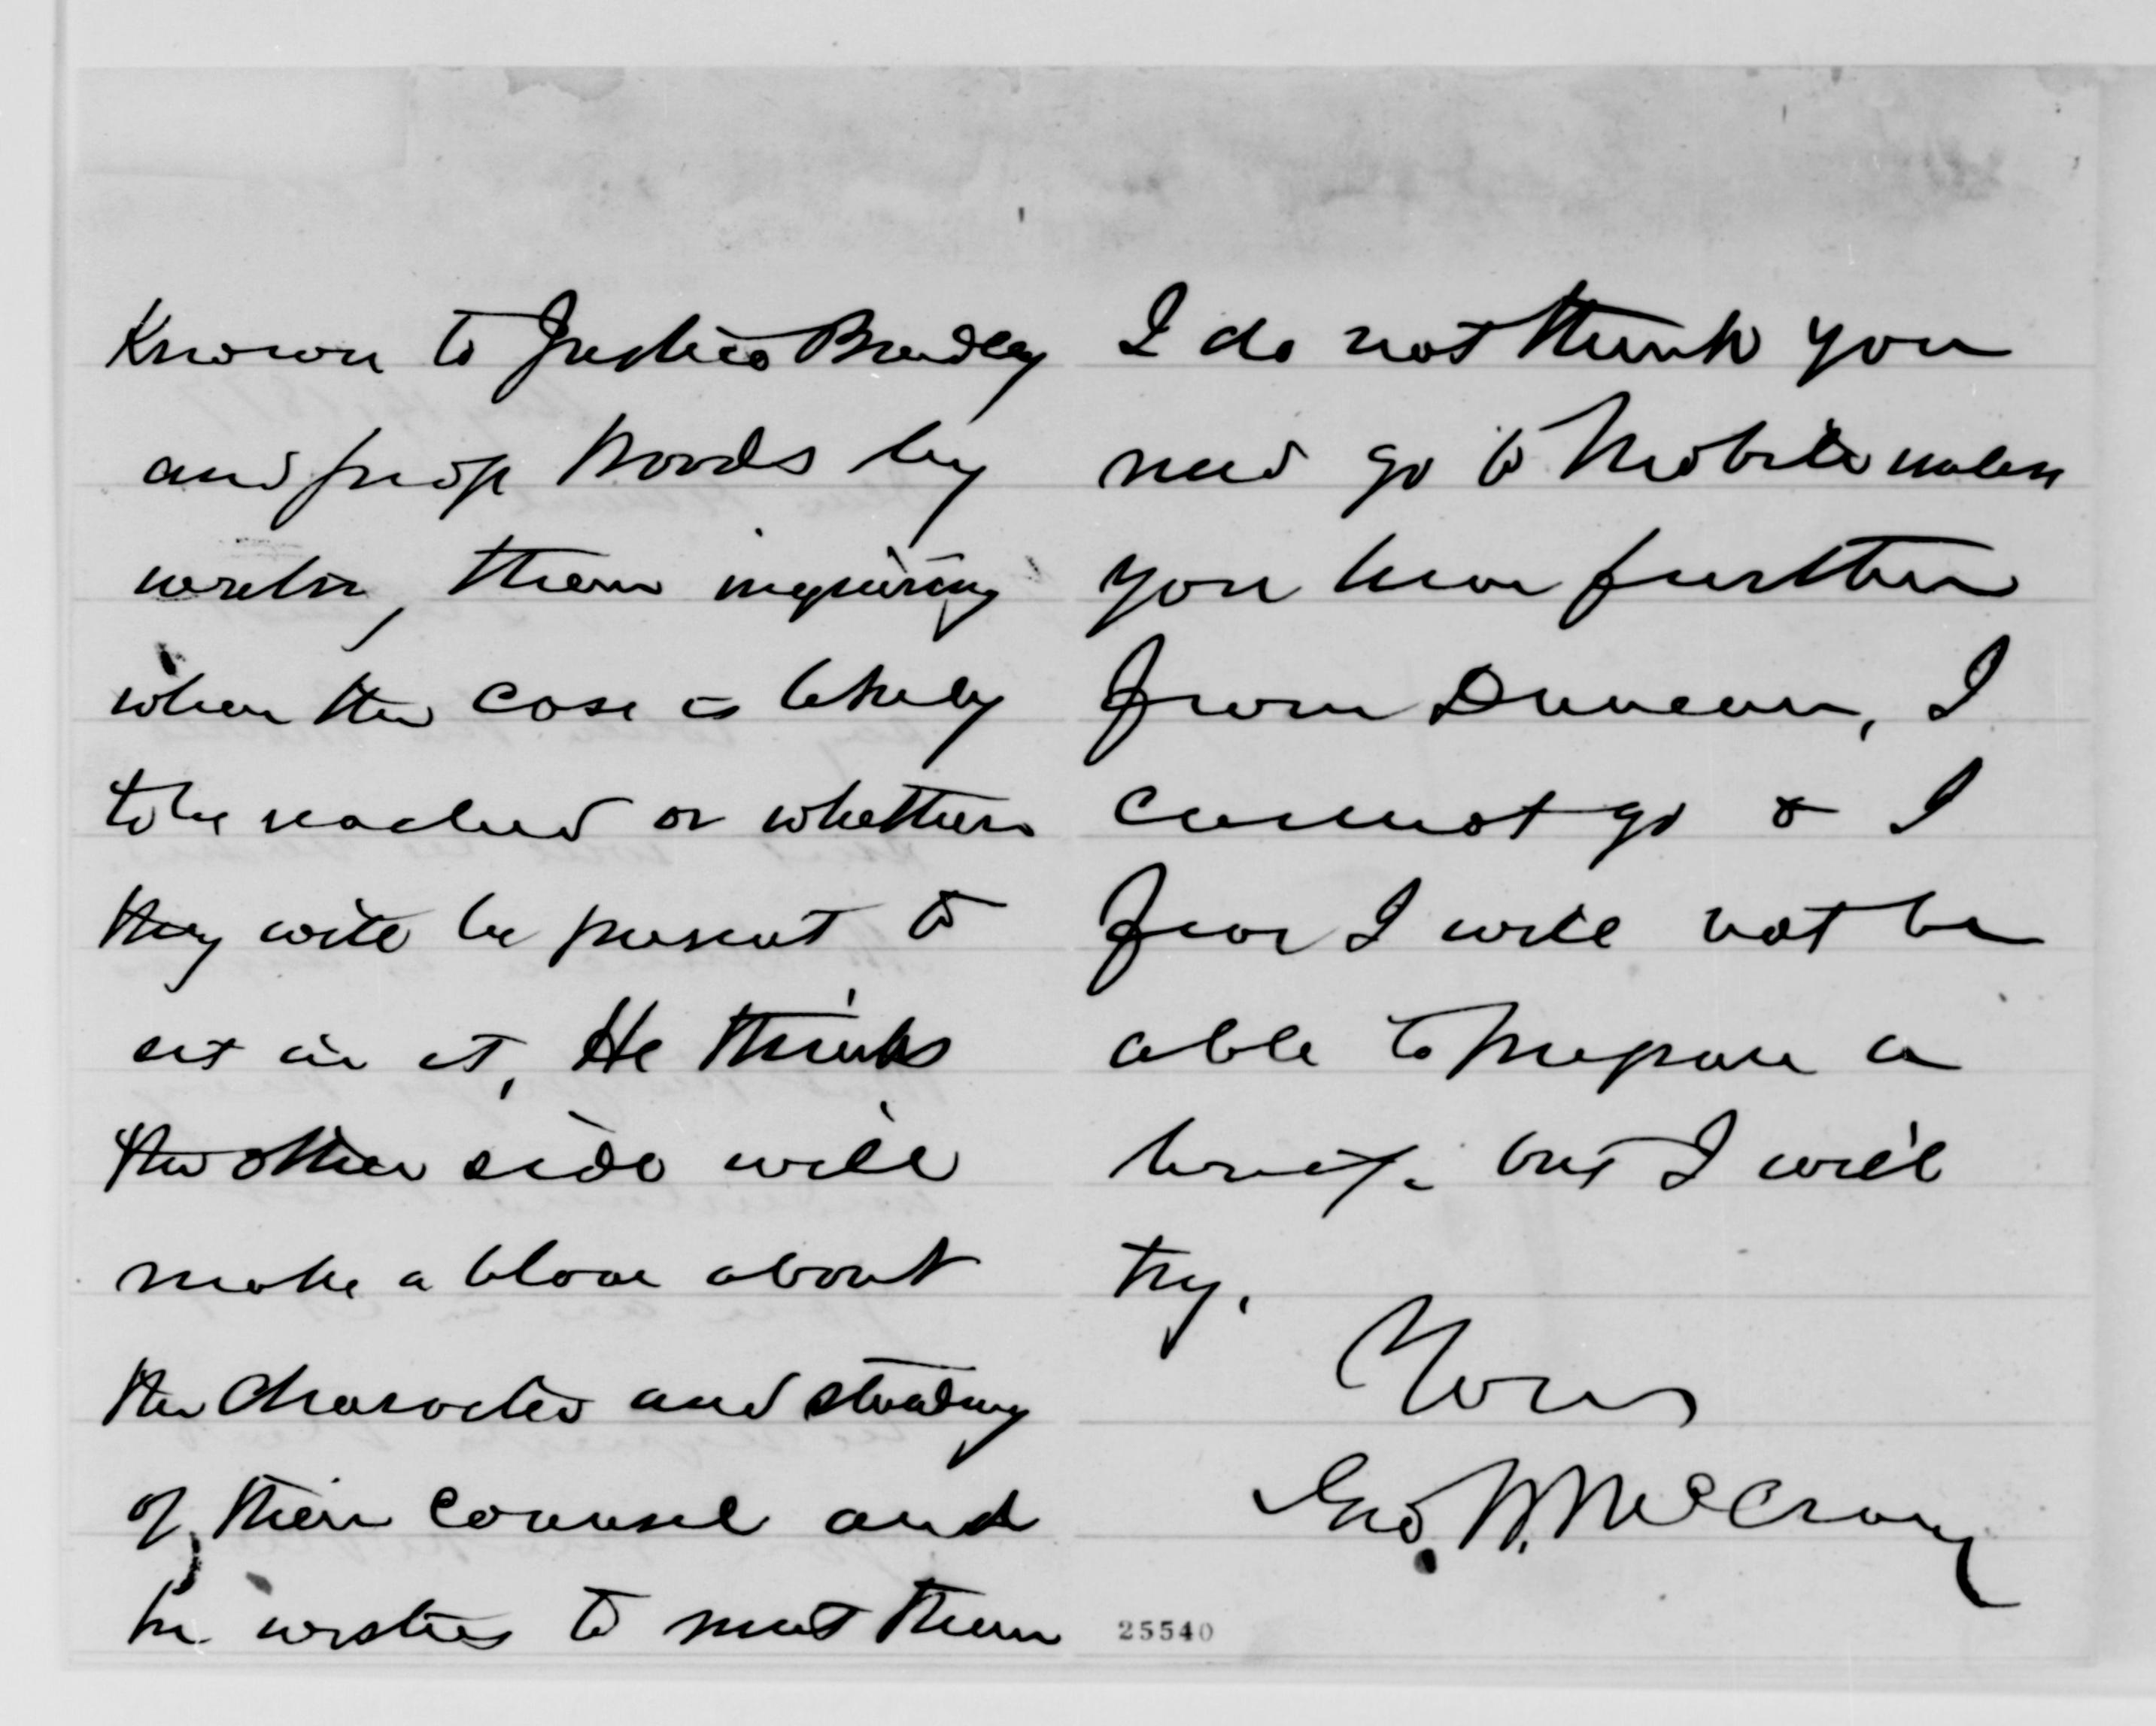 Known to Justice Bradley
and Judge Woods by
writing them inquiring
when the case is likely
to be reached or whether
they will be present to
sit in it, He thinks
the other side will
make a blow about
the character and standing
of their counsel and
he wishes to meet them
I do not think you
need go to Mobile unless
you hear further
from Duncan, I
cannot go & I
fear I will not be
able to prepare a
brief. but I will
try.
Yours
Geo. W. McCrary
25540